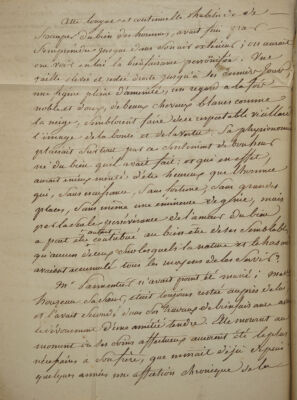 Cette longue et continuelle habitude de
s'occuper du bien des hommes, avait fini par
s'empreindre jusque dans son air extérieur; on aurait
cru voir en lui la bienfaisance personnifiée. Une
taille élevée et restée droite jusqu'à ses derniers jours,
une figure pleine d'aménité, un regard à la fois
noble et doux, de beaux cheveux blancs comme
la neige, semblaient faire de ce respectable vieillard
l'image de la bonté et de la vertu. Sa physionomie
plaisait surtout par ce sentiment de bonheur
né du bien qu'il avait fait: et qui en effet,
aurait mieux mérité d'être heureux que l'homme
qui, sans naissance, sans fortune, sans grandes
places, sans même une éminence de génie, mais
par la seule persévérance de l'amour du bien,
a peut être autant contribué au bien être de ses semblables
qu'aucun de ceux sur lesquels la nature et le hasard
avaient accumulé tous les moyens de les servir?
Mr. Parmentier n'avait point été marié; Me
houzeau sa sœur, était toujours restée auprès de lui
et l'avait secondé dans ses travaux de bienfaisance avec
le dévouement d'une amitié tendre. Elle mourut au
moment où ses soins affectueux auraient été le plus
nécessaires à son frère, que minait déjà depuis
quelques années une affection chronique de la